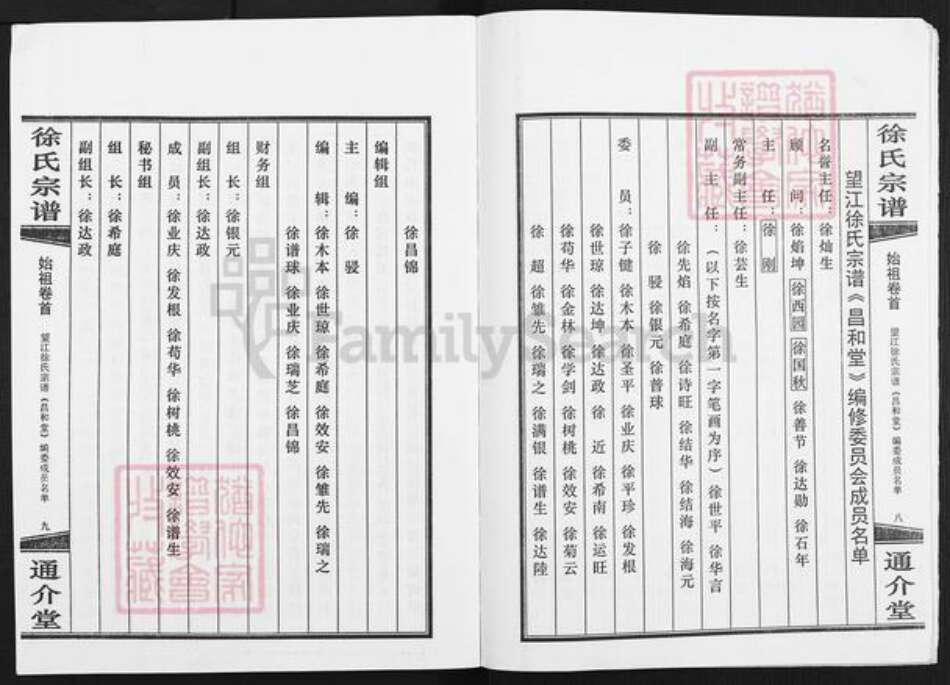 徐氏宗谱
始祖卷首
望江徐氏宗谱《昌和堂》编委成员名单
八
通介堂
望江徐氏宗谱《昌和堂》编修委员会成员名单
名誉主任：徐灿生
顾 问：徐焰坤 徐西四 徐国秋 徐善节 徐达勋 徐石年
主 任：徐 刚
常务副主任：徐芸生
副 主 任：（以下按名字第一字笔画为序）徐世平 徐华言
徐先焰 徐希庭 徐诗旺 徐结华 徐结海 徐海元
徐 骎 徐银元 徐普球
委 员：徐子健 徐木本 徐圣平 徐业庆 徐平珍 徐发根
徐世琼 徐达坤 徐达政 徐 近 徐希南 徐运旺
徐荀华 徐金林 徐学剑 徐树桃 徐效安 徐菊云
徐 超 徐雏先 徐瑞之 徐满银 徐谱生 徐达陸
徐昌锦
编辑组
主 编：徐 骎
编 辑：徐木本 徐世琼 徐希庭 徐效安 徐雏先 徐瑞之
徐谱球 徐业庆 徐瑞芝 徐昌锦
财务组
组 长：徐银元
副组长：徐达政
成 员：徐业庆 徐发根 徐荀华 徐树桃 徐效安 徐谱生
秘书组
组 长：徐希庭
副组长：徐达政
徐氏宗谱
始祖卷首
望江徐氏宗谱《昌和堂》编委成员名单
九
通介堂
FamilySearch